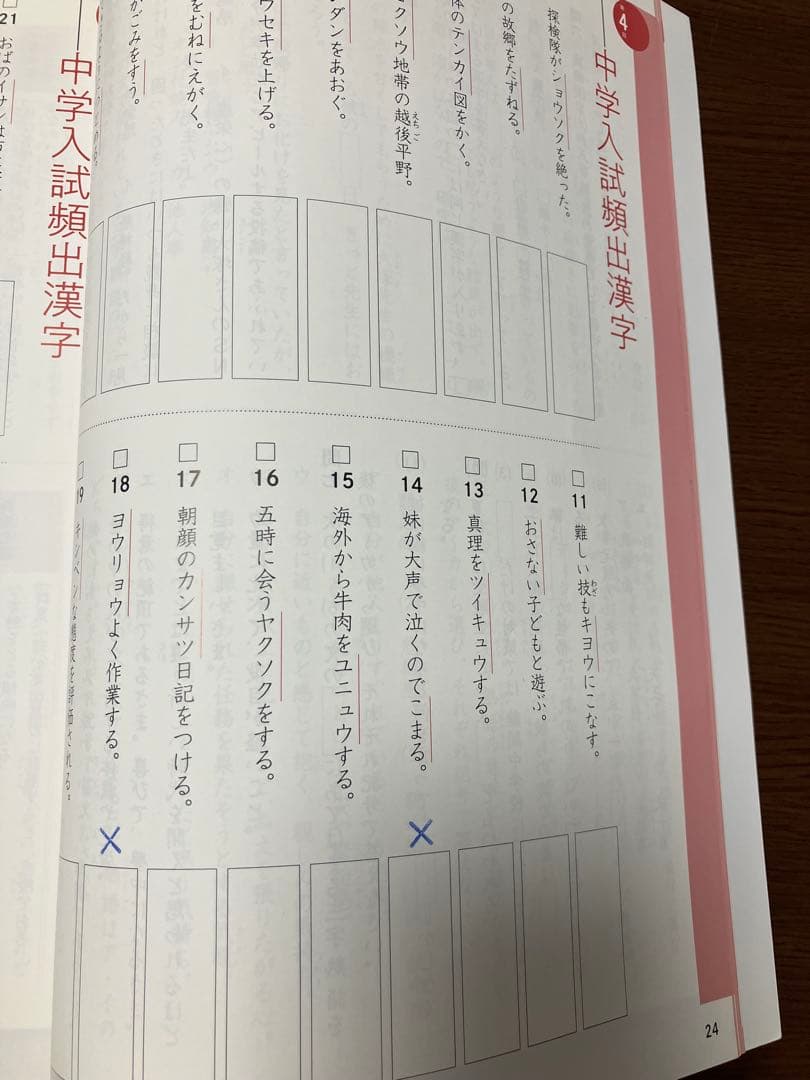 第4回
中学入試頻出漢字
探検隊がショウソクを絶った。
の故郷をたずねる。
体のテンカイ図をかく。
クソウ地帯の越後平野。
えちご
ダンをあおぐ。
ウセキを上げる。
をむねにえがく。
がごみをすう。
11 難しい技もキヨウにこなす。
わざ
12 おさない子どもと遊ぶ。
13 真理をツイキュウする。
14 妹が大声で泣くのでこまる。
15 海外から牛肉をユニュウする。
16 五時に会うヤクソクをする。
17 朝顔のカンサツ日記をつける。
18 ヨウリョウよく作業する。
19 キンベンな態度を評価される。
24
中学入試頻出漢字
21 おばのイサンは